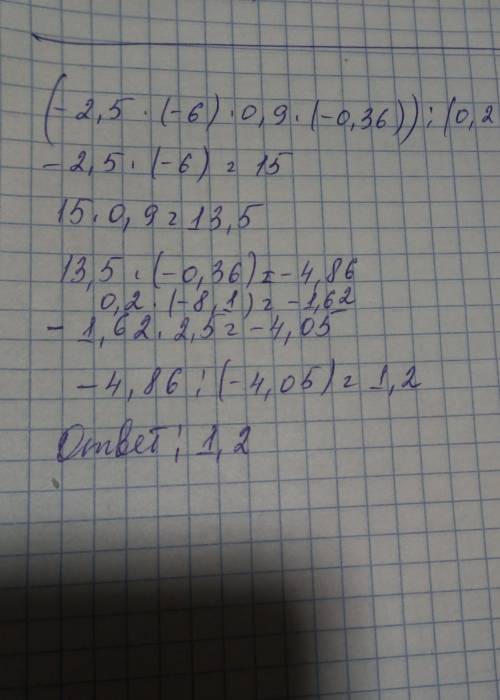 (-2,5 · (-6) · 0,9 · (-0,36)) : (0,2
-2,5 · (-6) = 15
15 · 0,9 = 13,5
13,5 · (-0,36) = -4,86
0,2 · (-8,1) = -1,62
-1,62 · 2,5 = -4,05
-4,86 : (-4,05) = 1,2
Ответ: 1,2